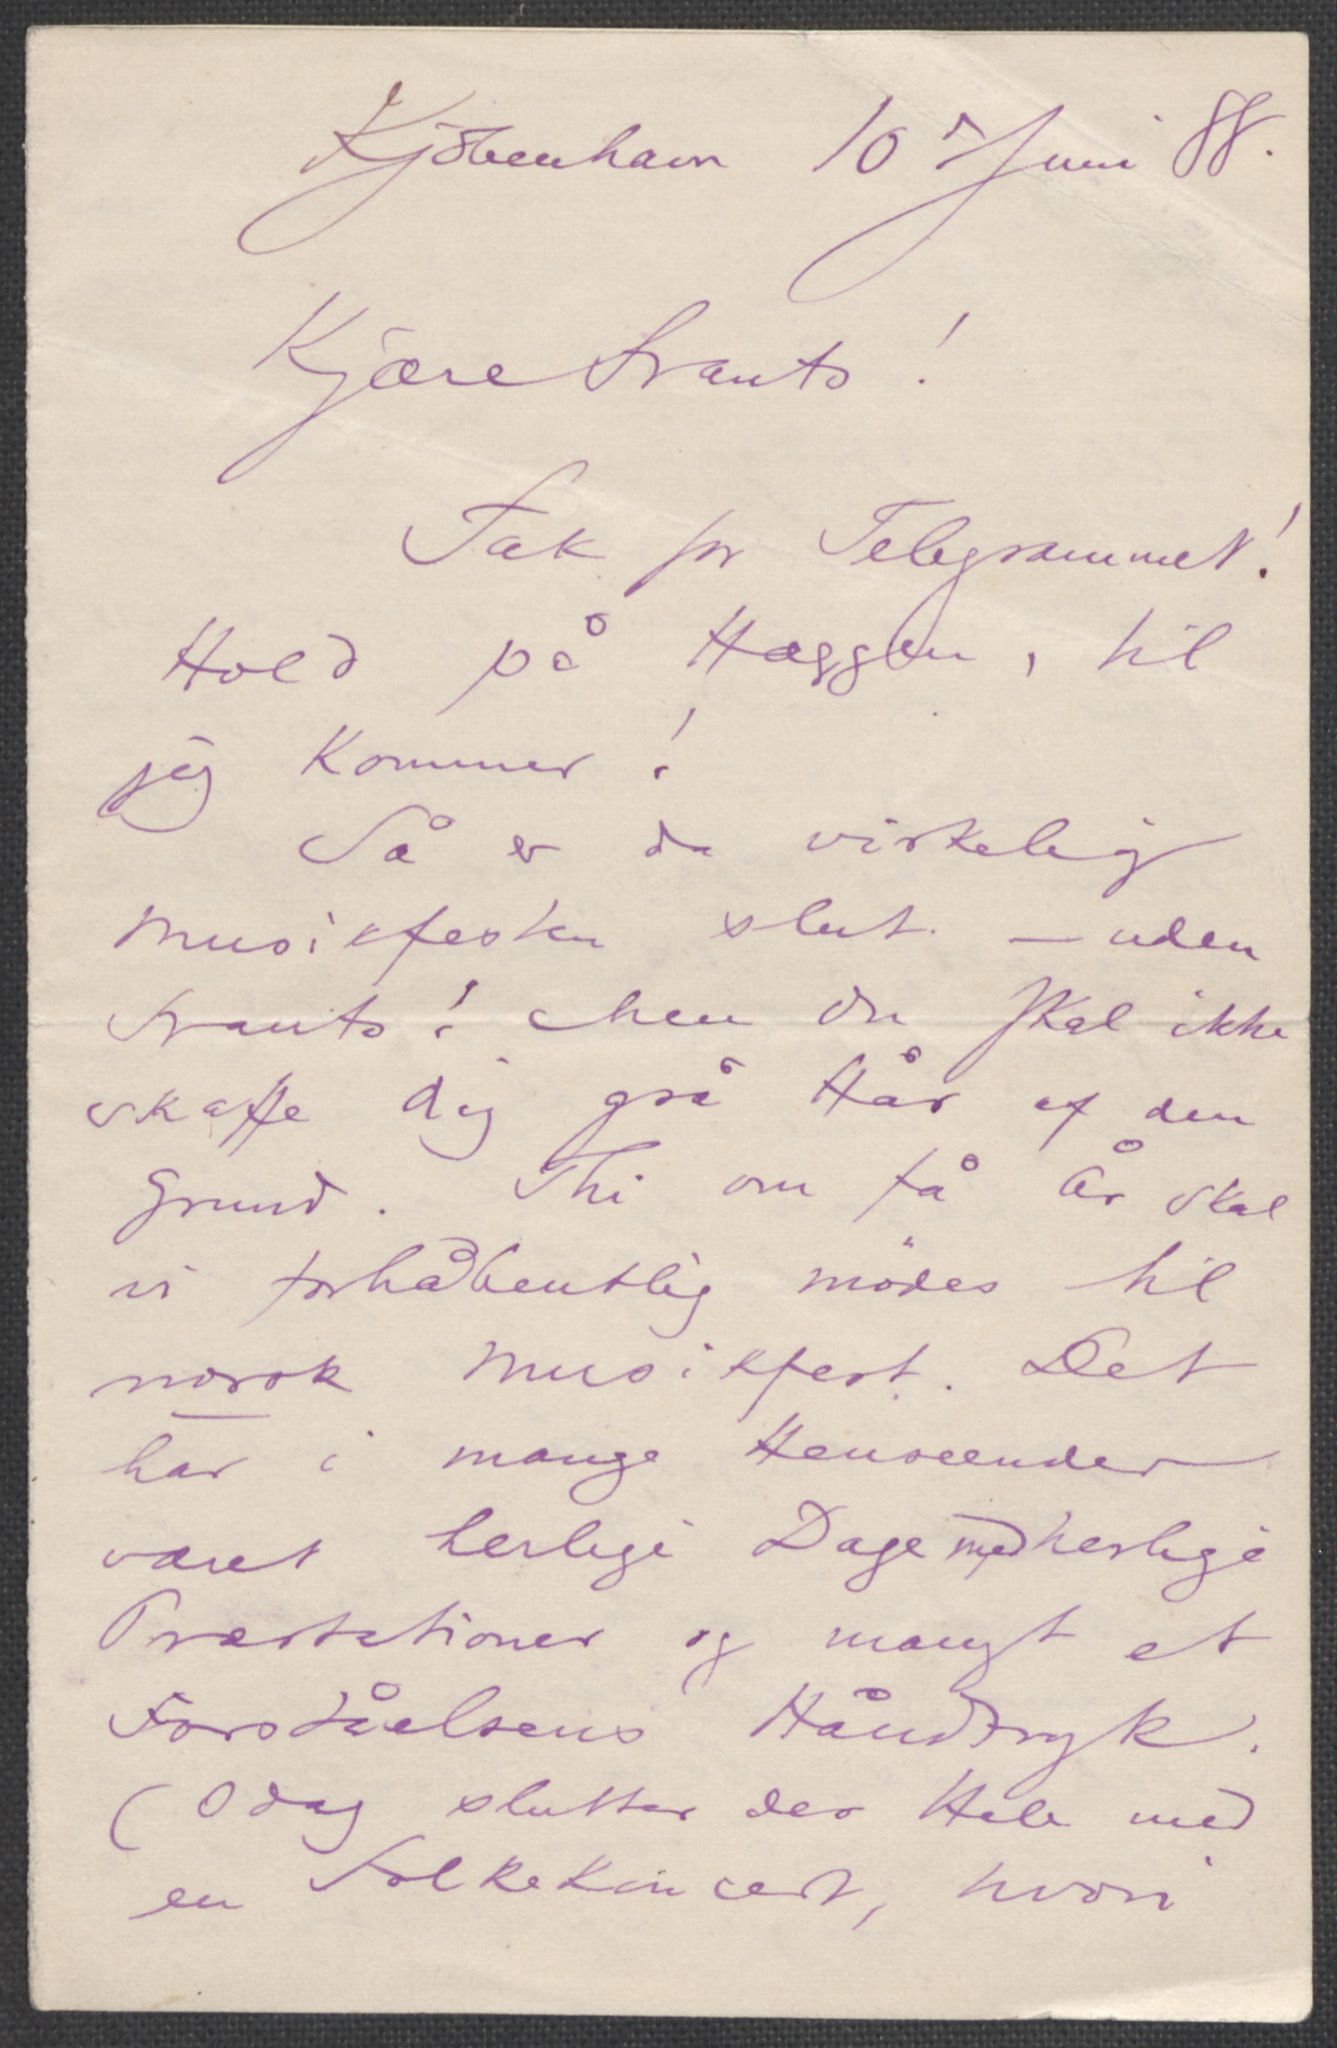 Kjöbenhavn 10 Juni 88.
Kjære Frants!
Tak for Telegrammet!
Hold på Hæggen, til
jeg kommer!
Så er da virkelig
Musikfesten slut. – uden
Frants! Men Du skal ikke
skaffe dig grå Hår af den
Grund. Thi om få År skal
vi forhåbentlig mödes til
norsk Musikfest. Det
har i mange Henseender
været herlige Dage med herlige
Præstationer og mangt et
Forståelsens Håndtryk.
(Idag slutter det Hele med
en Folkekoncert, hvori